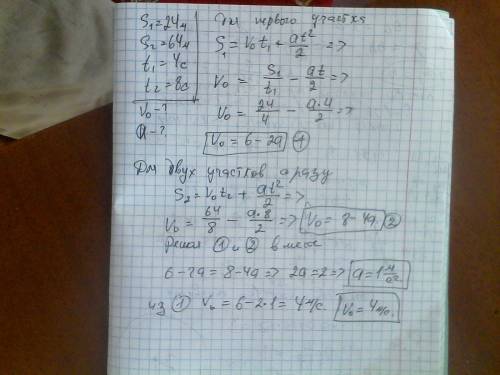 S₁=24м
S₂=64м
t₁=4с
t₂=8с
V₀-?
a-?
Для первого участка
S₁=V₀t₁+at²/2 =>
V₀ = S₁/t₁ - at/2 =>
V₀ = 24/4 - a·4/2 =>
V₀ = 6-2a ①
Для двух участков сразу
S₂=V₀t₂+at²/2 =>
V₀ = 64/8 - a·8/2 => V₀ = 8-4a ②
Решая ① и ② вместе
6-2a = 8-4a => 2a=2 => a=1м/с²
из ① V₀ = 6-2·1 = 4м/с. V₀=4м/с.